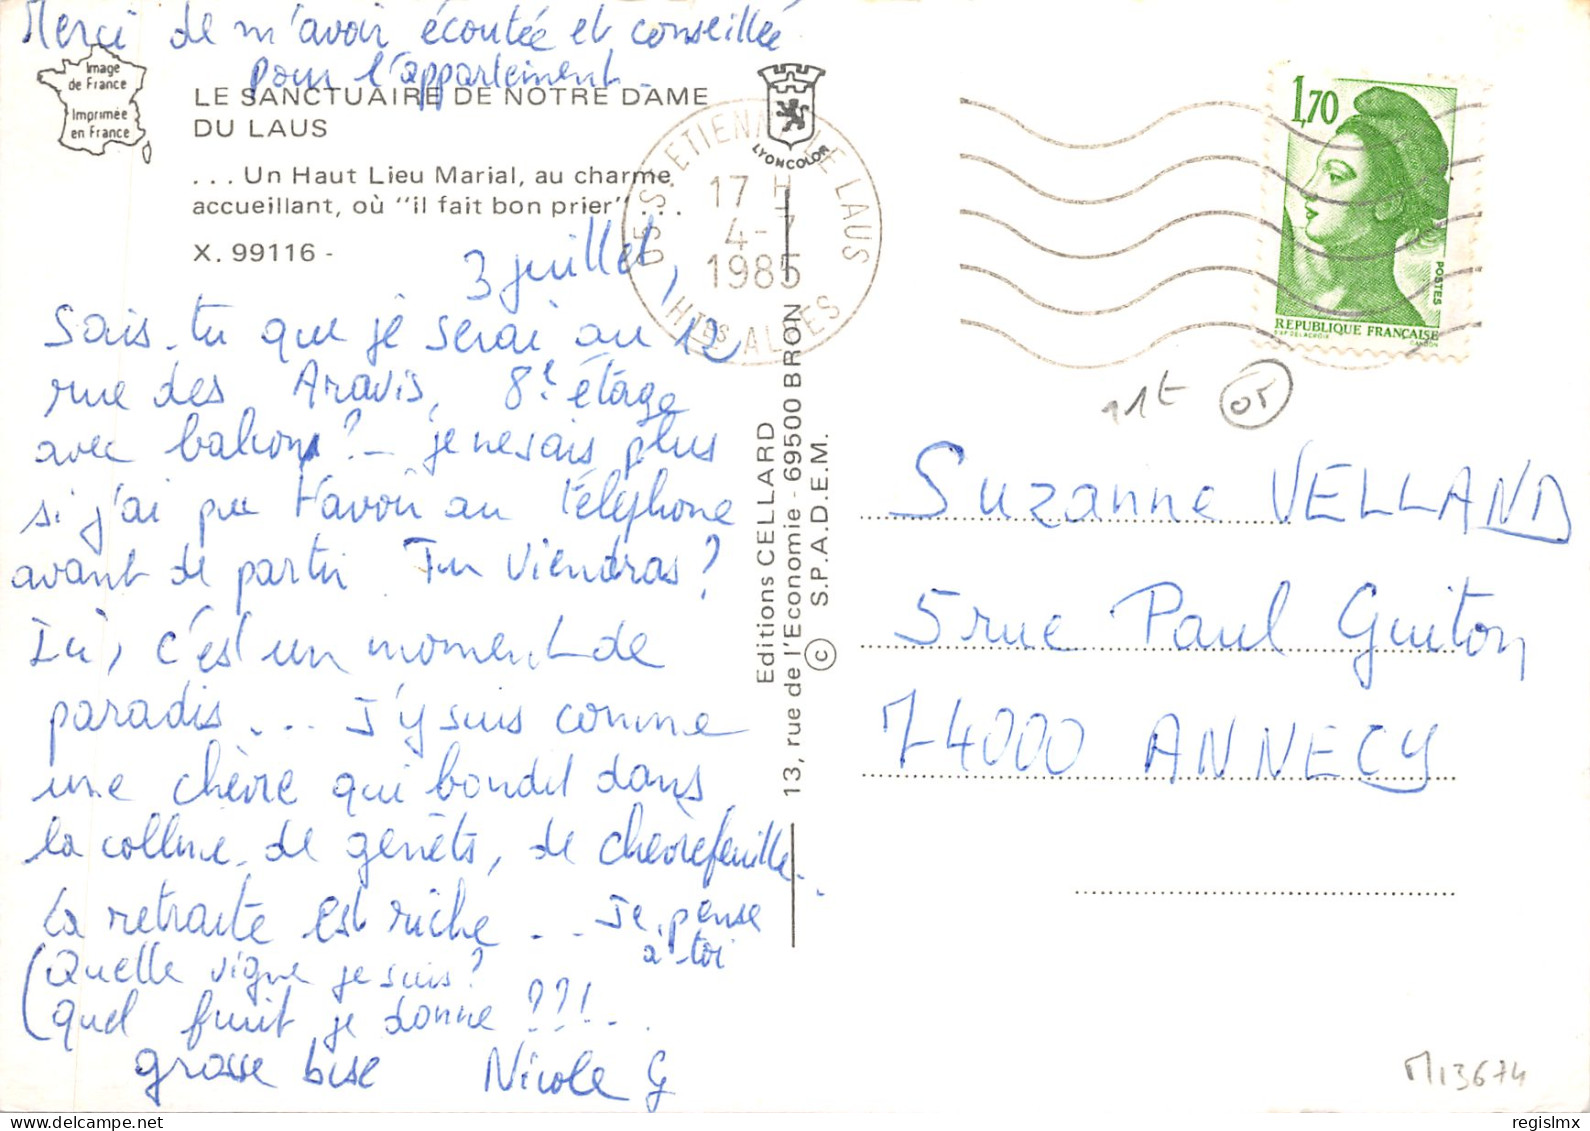 Merci de m'avoir écoutée et conseillée
pour l'appartement.
Image
de France
Imprimée
en France
LE SANCTUAIRE DE NOTRE DAME
DU LAUS
... Un Haut Lieu Marial, au charme
accueillant, où "il fait bon prier" ...
X. 99116 -
3 juillet,
Sais-tu que je serai au 12
rue des Aravis, 8e étage
avec balcon? - je ne sais plus
si j'ai pu t'avoir au téléphone
avant de partir Tu viendras?
Ici, c'est un moment de
paradis... J'y suis comme
une chèvre qui bondit dans
la colline de genêts, de chèvrefeuille..
La retraite est riche... Je pense
à toi
(Quelle vigne je suis?
(quel fruit je donne ??!...
grosse bise Nicole G
LYONCOLOR
05 ST. ETIENNE LE LAUS
17 H
4-7
1985
HTES ALPES
Editions CELLARD
13, rue de l'Economie - 69500 BRON
© S.P.A.D.E.M.
1,70
POSTES
REPUBLIQUE FRANÇAISE
D'AP. DELACROIX GANDON
11t 05
Suzanne VELLAND
5 rue Paul Guiton
74000 ANNECY
M13674
regislmx